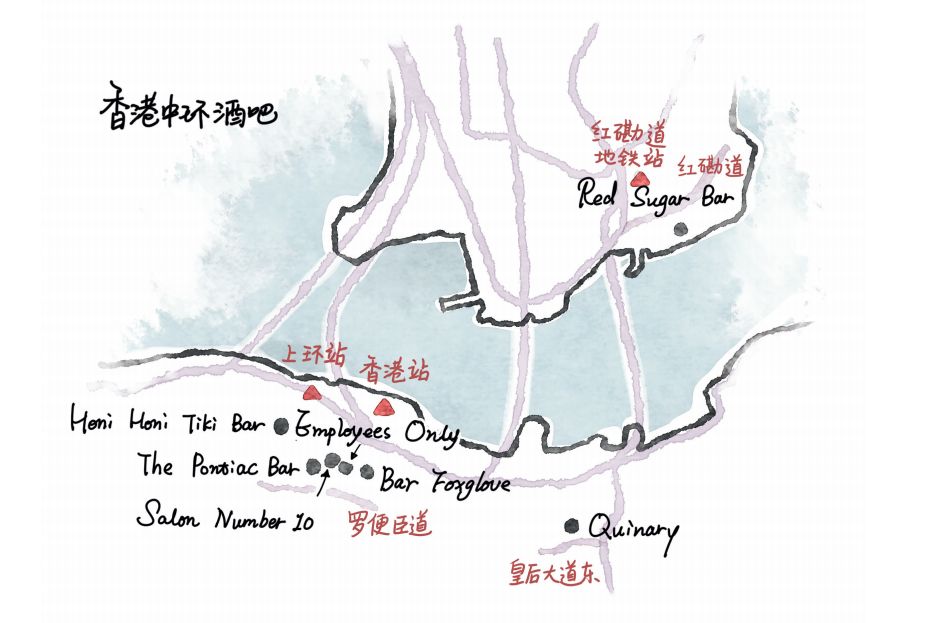 香港中环酒吧
红磡道
地铁站
红磡道
Red Sugar Bar
上环站
香港站
Honi Honi Tiki Bar
Employees Only
The Pontiac Bar
Bar Foxglove
Salon Number 10
罗便臣道
Quinary
皇后大道东